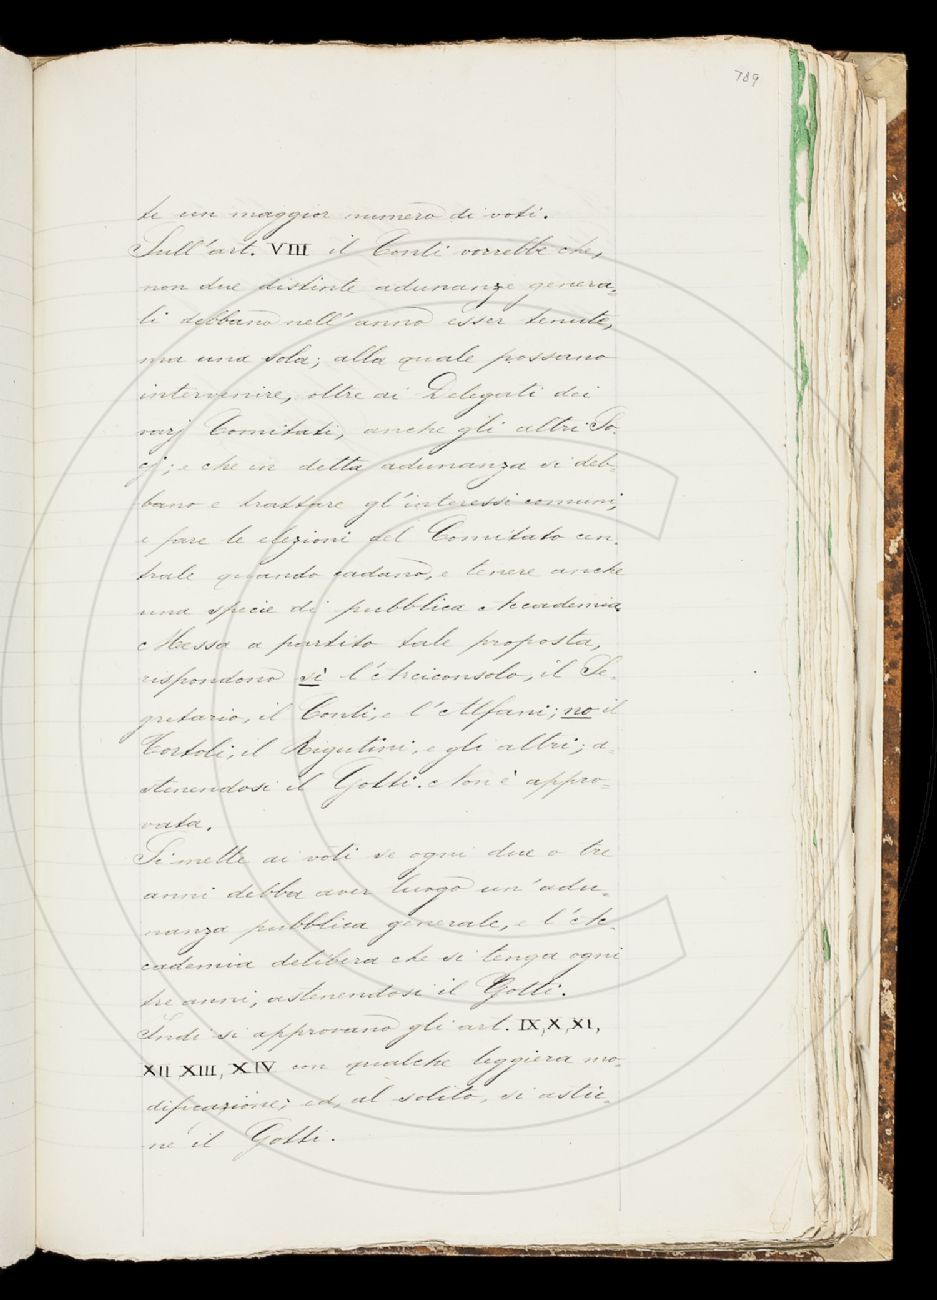 789
te un maggior numero di voti.
Sull'art. VIII il Conti vorrebbe che,
non due distinte adunanze genera=
li debbano nell'anno esser tenute,
ma una sola; alla quale possano
intervenire, oltre ai Delegati dei
varj Comitati, anche gli altri So=
cj; e che in detta adunanza si deb=
bano e trattare gl'interessi comuni,
e fare le elezioni del Comitato cen=
trale quando cadano, e tenere anche
una specie di pubblica Accademia.
Messa a partito tale proposta,
rispondono sì l'Arciconsolo, il Se=
gretario, il Conti, e l'Alfani; no il
Tortoli, il Rigutini, e gli altri; a=
stenendosi il Gotti. Non è appro=
vata.
Si mette ai voti se ogni due o tre
anni debba aver luogo un'adu=
nanza pubblica generale, e l'Ac=
cademia delibera che si tenga ogni
tre anni, astenendosi il Gotti.
Indi si approvano gli art. IX, X, XI,
XII, XIII, XIV con qualche leggiera mo=
dificazione; ed, al solito, si astie=
ne il Gotti.